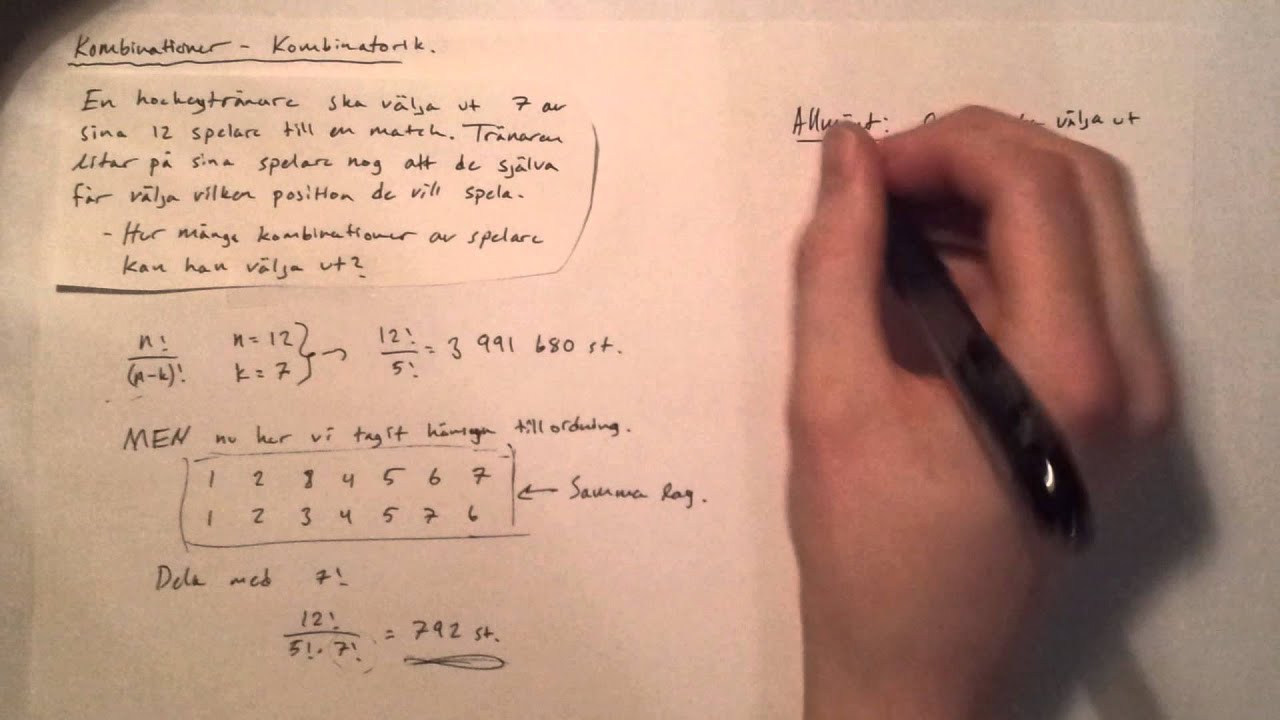 Kombinationer - Kombinatorik.
En hockeytränare ska välja ut 7 av
sina 12 spelare till en match. Tränaren
litar på sina spelare nog att de själva
får välja vilken position de vill spela.
- Hur många kombinationer av spelare
kan han välja ut?
n! / (n-k)!   n = 12   k = 7   12! / 5! = 3 991 680 st.
MEN nu har vi tagit hänsyn till ordning.
1 2 8 4 5 6 7
1 2 3 4 5 7 6
← Samma lag.
Dela med 7!
12! / 5! · 7! = 792 st.
Allmänt: välja ut